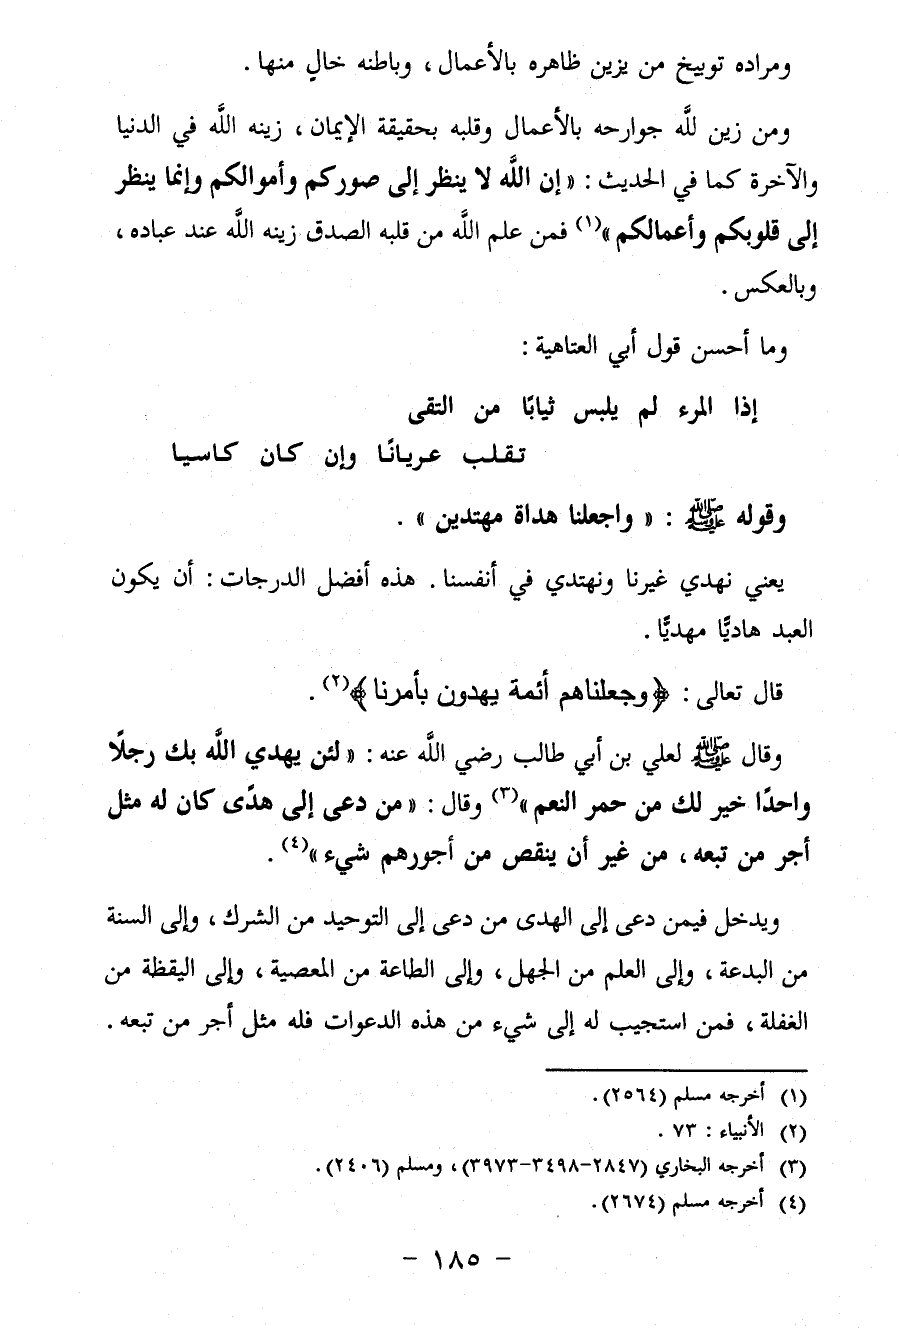 ومراده توبيخ من يزين ظاهره بالأعمال ، وباطنه خالٍ منها .
ومن زين للَّه جوارحه بالأعمال وقلبه بحقيقة الإيمان ، زينه اللَّه في الدنيا
والآخرة كما في الحديث : « إن اللَّه لا ينظر إلى صوركم وأموالكم وإنما ينظر
إلى قلوبكم وأعمالكم »(١) فمن علم اللَّه من قلبه الصدق زينه اللَّه عند عباده ،
وبالعكس .
وما أحسن قول أبي العتاهية :
إذا المرء لم يلبس ثيابًا من التقى
تقلب عريانًا وإن كان كاسيا
وقوله ﷺ : « واجعلنا هداة مهتدين » .
يعني نهدي غيرنا ونهتدي في أنفسنا . هذه أفضل الدرجات : أن يكون
العبد هاديًّا مهديًّا .
قال تعالى : ﴿وجعلناهم أئمة يهدون بأمرنا﴾(٢) .
وقال ﷺ لعلي بن أبي طالب رضي اللَّه عنه : « لئن يهدي اللَّه بك رجلًا
واحدًا خير لك من حمر النعم »(٣) وقال : « من دعى إلى هدًى كان له مثل
أجر من تبعه ، من غير أن ينقص من أجورهم شيء »(٤) .
ويدخل فيمن دعى إلى الهدى من دعى إلى التوحيد من الشرك ، وإلى السنة
من البدعة ، وإلى العلم من الجهل ، وإلى الطاعة من المعصية ، وإلى اليقظة من
الغفلة ، فمن استجيب له إلى شيء من هذه الدعوات فله مثل أجر من تبعه .
(١) أخرجه مسلم (٢٥٦٤) .
(٢) الأنبياء : ٧٣ .
(٣) أخرجه البخاري (٢٨٤٧-٣٤٩٨-٣٩٧٣) ، ومسلم (٢٤٠٦) .
(٤) أخرجه مسلم (٢٦٧٤) .
- ١٨٥ -